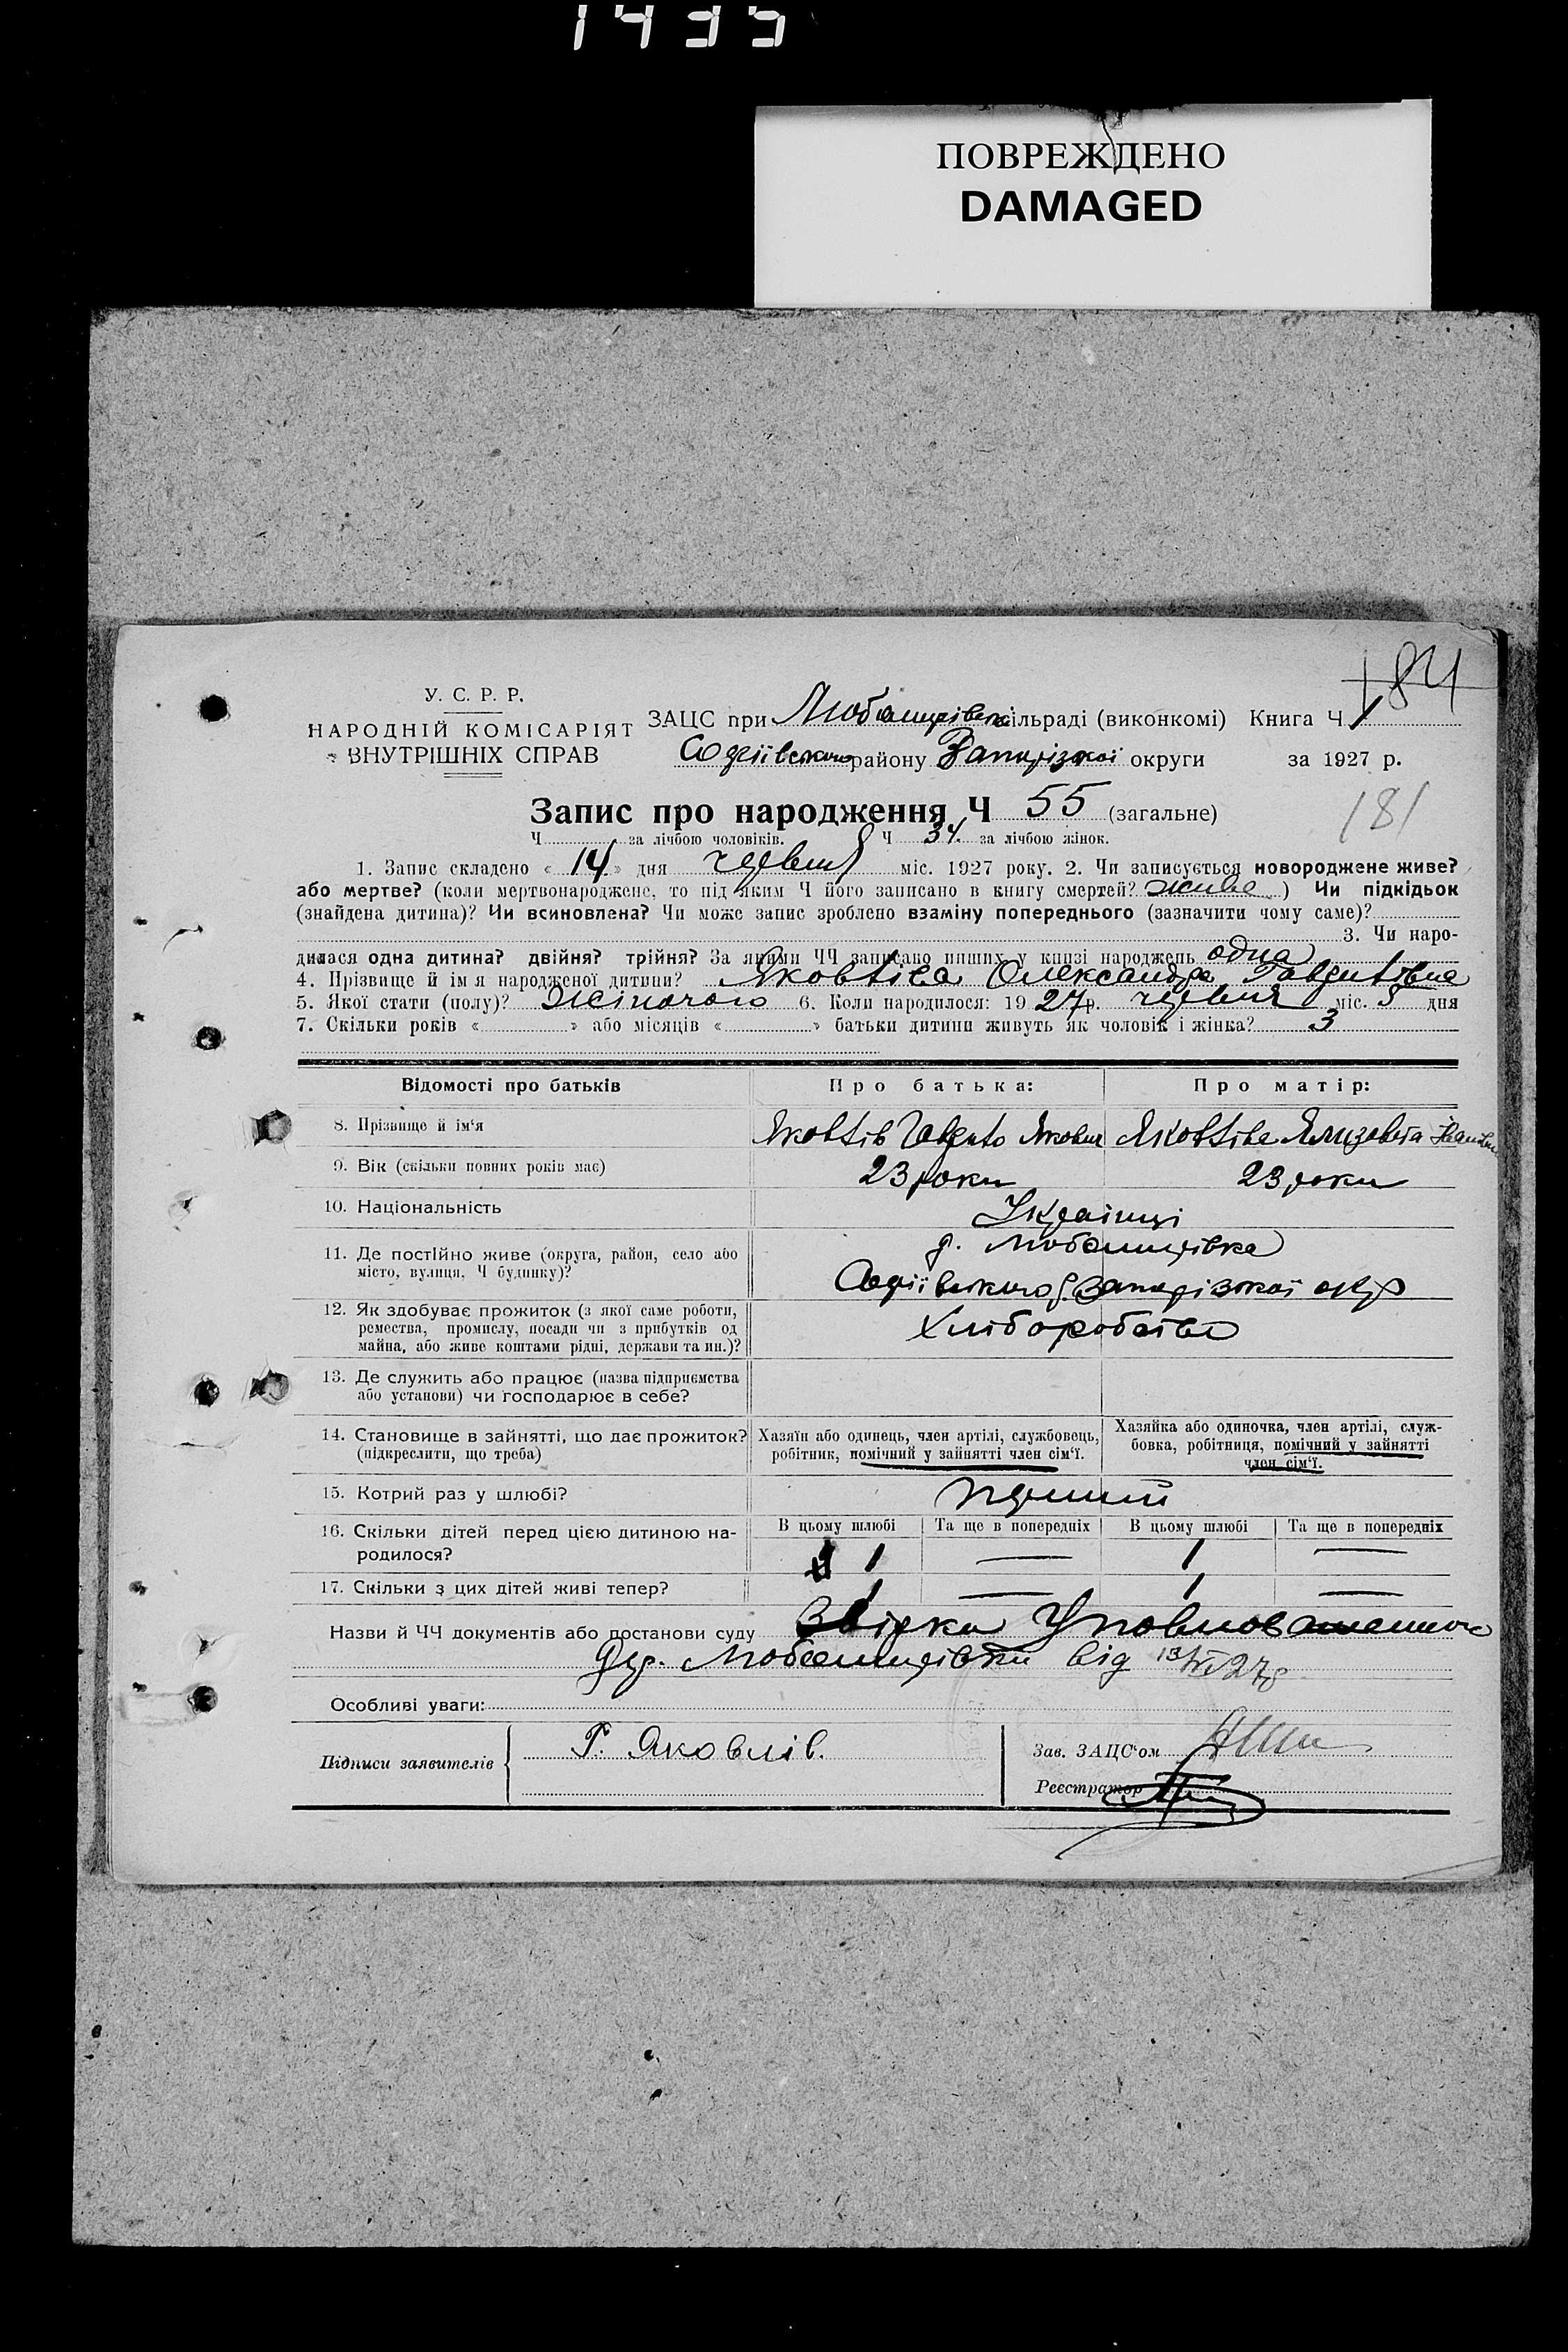 1435
ПОВРЕЖДЕНО
DAMAGED
184
У. С. Р. Р.
НАРОДНІЙ КОМІСАРІЯТ
ВНУТРІШНІХ СПРАВ
ЗАЦС при Любомирівськ сільраді (виконкомі) Книга Ч 1
Софіївського району Запорізької округи за 1927 р.
Запис про народження Ч 55 (загальне)
181
Ч за лічбою чоловіків. Ч 34 за лічбою жінок.
1. Запис складено « 14 » дня червня міс. 1927 року. 2. Чи записується новороджене живе?
або мертве? (коли мертвонароджене, то під яким Ч його записано в книгу смертей? живе ) Чи підкідьок
(знайдена дитина)? Чи всиновлена? Чи може запис зроблено взаміну попереднього (зазначити чому саме)?
3. Чи наро-
дилася одна дитина? двійня? трійня? За якими ЧЧ записано инших у книзі народжень одна
4. Прізвище й ім я народженої дитини? Яковліва Олександра
5. Якої стати (полу)? жіночого 6. Коли народилося: 19 27 р. червня міс. 5 дня
7. Скільки років « » або місяців « » батьки дитини живуть як чоловік і жінка? 3
Відомості про батьків Про батька: Про матір:
8. Прізвище й ім'я Яковлів Якович Яковліва Єлизовета Іванівн
9. Вік (скільки повних років має) 23 роки 23 роки
10. Національність Українці
11. Де постійно живе (округа, район, село або
місто, вулиця, Ч будинку)?
Любомирівка
Софіївського р. Запорізької окр
12. Як здобуває прожиток (з якої саме роботи,
ремества, промислу, посади чи з прибутків од
майна, або живе коштами рідні, держави та ин.)?
Хліборобство
13. Де служить або працює (назва підприємства
або установи) чи господарює в себе?
14. Становище в зайнятті, що дає прожиток?
(підкреслити, що треба)
Хазяїн або одинець, член артілі, службовець,
робітник, помічний у зайнятті член сім'ї.
Хазяйка або одиночка, член артілі, служ-
бовка, робітниця, помічний у зайнятті
член сім'ї.
15. Котрий раз у шлюбі? перший
16. Скільки дітей перед цією дитиною на-
родилося?
В цьому шлюбі Та ще в попередніх В цьому шлюбі Та ще в попередніх
1 — 1 —
17. Скільки з цих дітей живі тепер? 1 — 1 —
Назви й ЧЧ документів або постанови суду Звірка Уповноваженного
Любомирівки від 13/VI 27р
Особливі уваги:
Підписи заявителів Г. Яковлів.
Зав. ЗАЦС'ом
Реєстратор